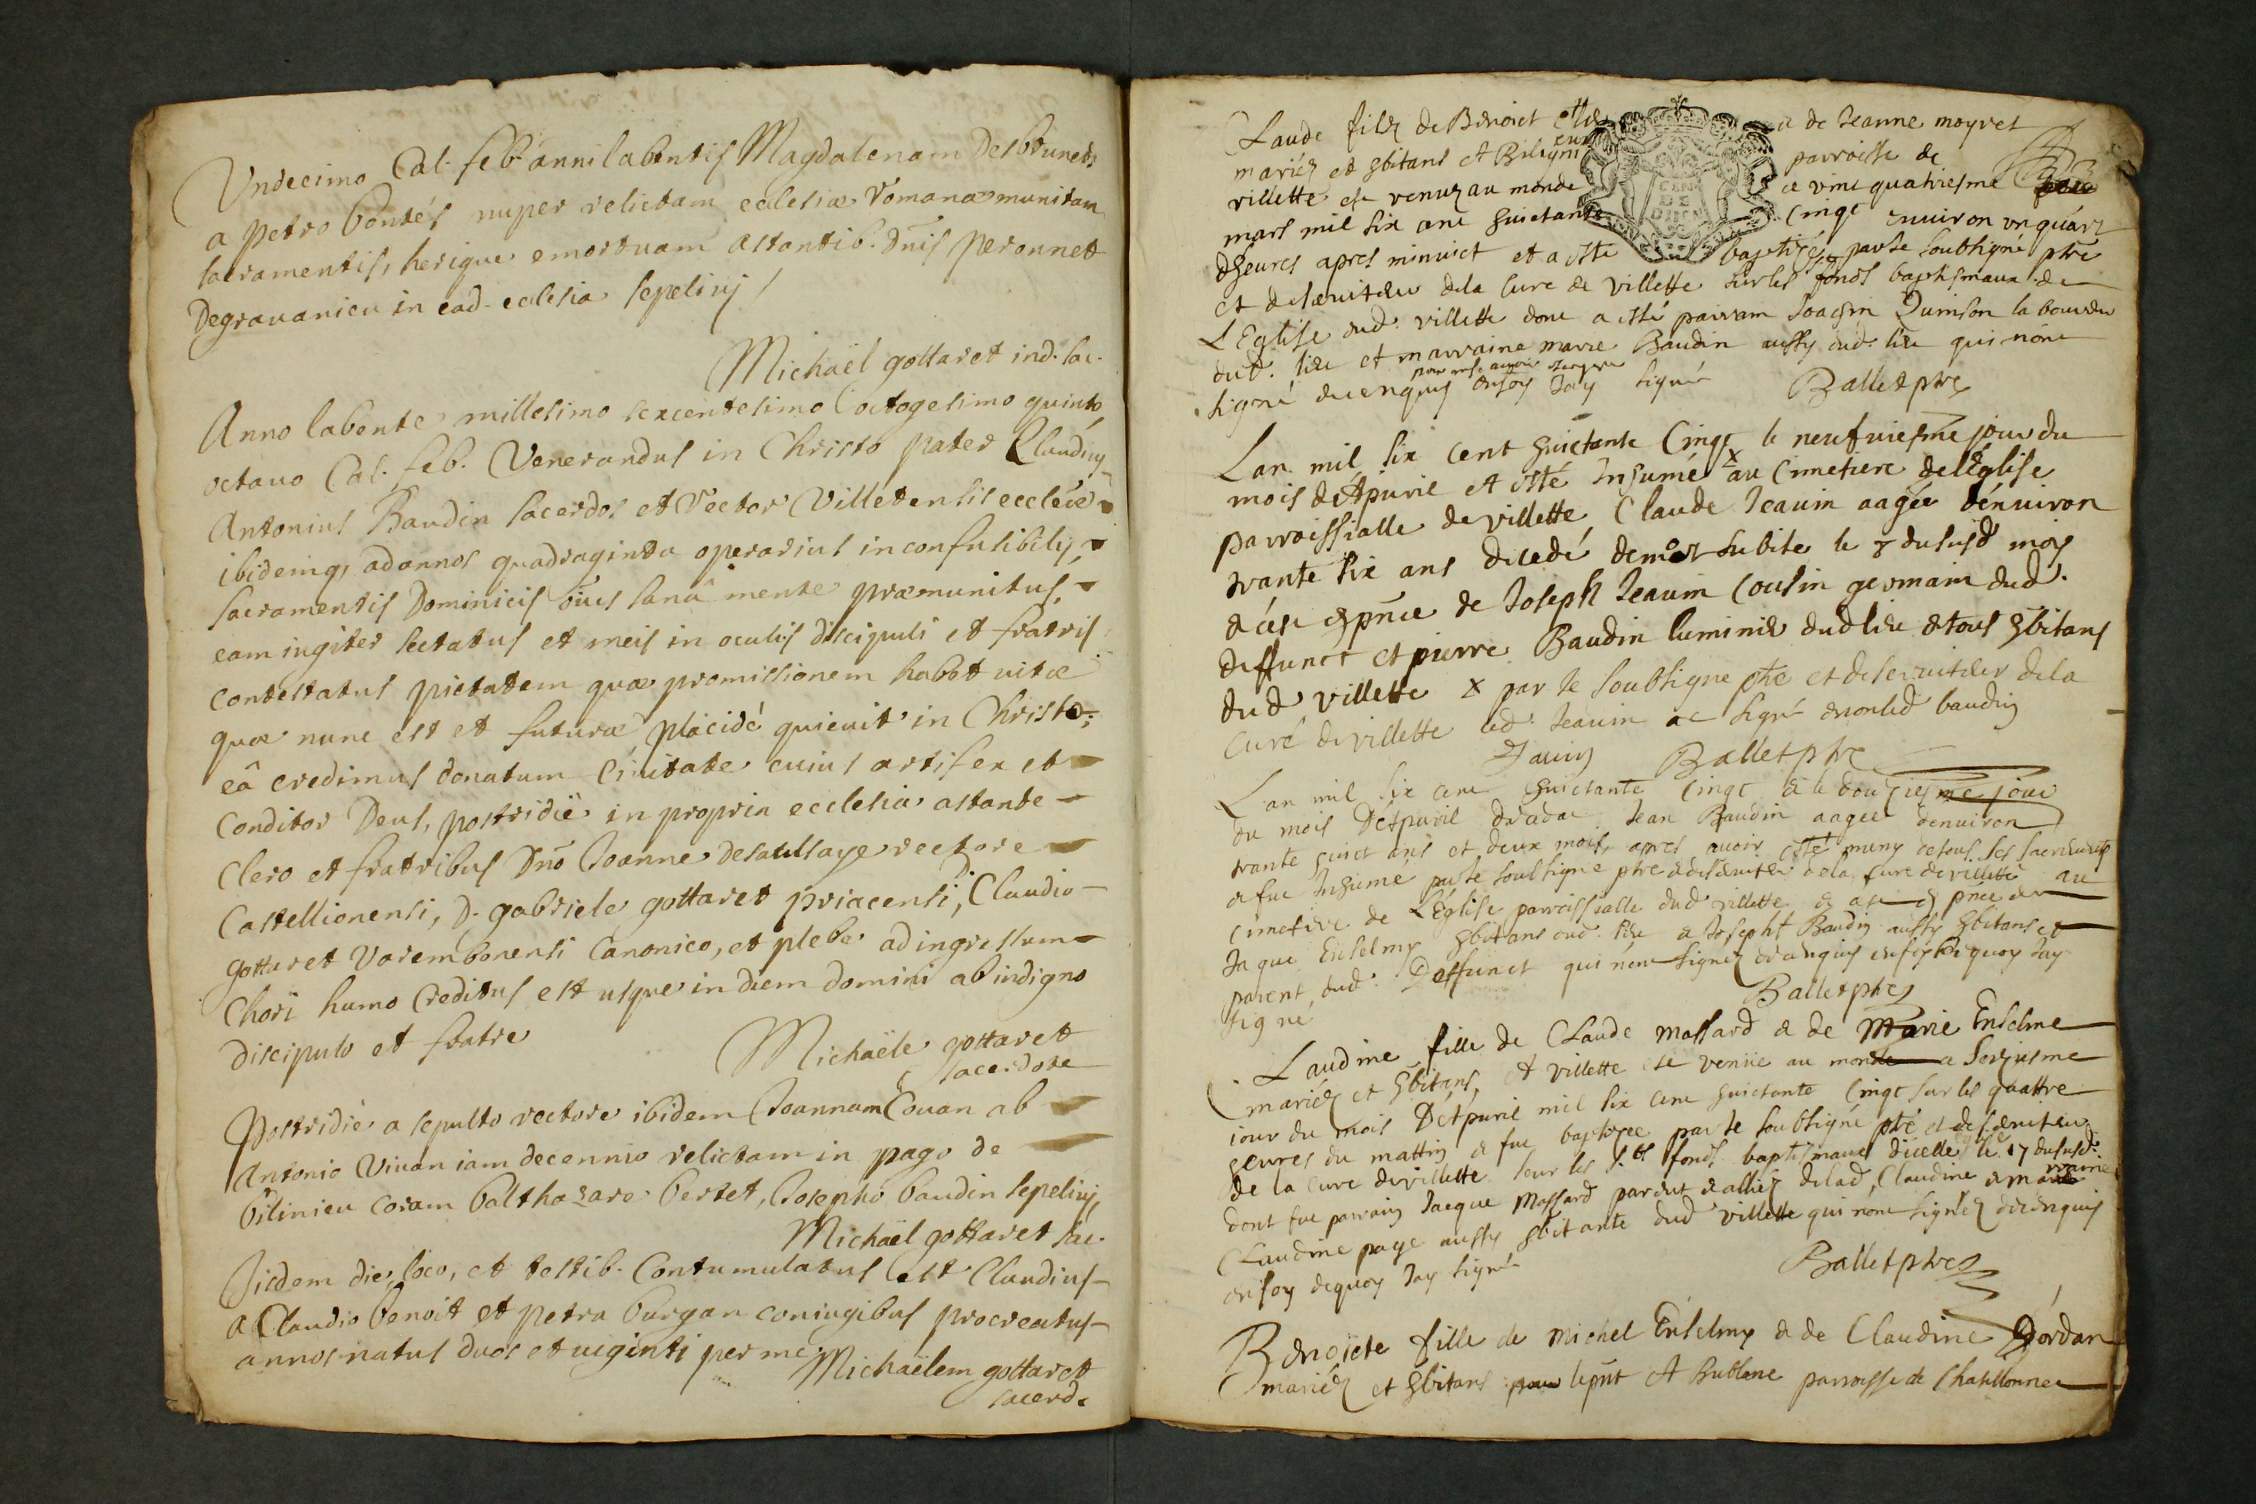 Vndecimo Cal. feb. anni labentis Magdalenam Desbrunets
a petro bontés nuper relictam ecclesiæ Romanæ munitam
sacramentis, herique emortuam astantib. Dnis peronnet
Degrauanieu in ead. ecclesia sepeliuj
Michaël gottaret ind. sac.
Anno labente millesimo sexcentesimo octogesimo quinto,
octauo Cal. feb. Venerandus in Christo pater Claudius
Antonius Baudin sacerdos et Rector Villetensis eccleiæ
ibidemq, ad annos quadraginta operarius inconfusibilis,
sacramentis Dominicis oües sanâ mente præmunitus,
eam iugiter sectatus et meis in oculis discipuli et fratris
contestatus pietatem quæ promissionem habet uitæ
quæ nunc est et futuræ placidé quieuit in Christo;
eâ credimus donatum Ciuitate cuius artifex et
Conditor Deus, postridië in propria ecclesia astante
Clero et fratribus Dno Joanne desaulsaye rectore
Castellionensi, D. gabriele gottaret priacensi, Claudio
gottaret Varembonensi Canonico, et plebe ad ingressum
Chori humo Creditus est usque in diem domini ab indigno
Discipulo et fratre
Michaële gottaret
sacerdote
Postridié a sepulto rectore ibidem Joannam Couan ab
Antonio Viuan iam decennio relictam in pago de
bilinieu coram balthazaro bertet, Josepho baudin sepeliuj,
Michaël gottaret sac.
Jisdem die, loco, et testib. Contumulatus est Claudius
a Claudio benoit et petra burgan coniugibus procreatus
annos natus duos et uiginti per me
Michaëlem gottaret
sacerd.
Laude filz de Benoict et de Jeanne moyret
mariéz et hbitans A parroisse de
villette est venuz au monde ce vint quatriesme
mars mil six cent huictante Cinqt enuiron vn quárt
dheures apres minuict et a esté baptizé par le soubsigné ptre
et deseruiteur dela Cure de villette sur les fonds baptismaux de
LEglise dud. villette dont a esté parrain Joachin Quinson laboureur
dud. lieu et marraine marie Baudin aussy dud. lieu qui nont
signé de enquis en foy Jay signé Ballet ptre
Lan mil six cent huictante Cinqt le neufuiesme jour du
mois d'Apuril A esté Inhumé x au Cimetiere de lEglise
parroissialle de villette Claude Jeauin aagée dénuiron
trante six ans decedé de mort subite le 8 du susd mois
& ce en pnce de Joseph Jeauin Cousin germain dud.
deffunct et pierre Baudin luminié dud lieu & tous hbitans
dud villette x par le soubsigne ptre et deseruiteur dela
Curé de villette led. Jeauin a signé & non led baudin
Jauin Ballet ptre
Lan mil six cent huictante Cinqt & le douziesme jour
du mois D'Apuril Jean Baudin aagee denuiron
trante huict ans et deux mois, apres auoir esté muny de tous ses sacrements
& fut Inhumé par le soubsigne ptre & deseruiteur dela Cure de villette au
cimetiere de LEglise parroissialle dud villette
Jaque Enselmy hbitans dud. lieu & Joseph Baudin aussy hbitans et
parent dud. Deffunct qui nont signez de enquis en foy de quoy Jay
signe
Ballet ptre
Laudine fille de Claude massard & de Marie Enselme
mariéz et hbitans A villette est venüe au monde a
iour du mois D'Apuril mil six cent huictante Cinqt sur les quattre
heures du mattin & fut baptizee par le soubsigné ptre et deseruiteur
de la cure de villette sur les s.ts fonds baptismaux dicelle le 17 du susd.
dont fut parrain Jacque Massard parent & alliez delad, Claudine & marraine
Claudine page aussy hbitante dud villette qui nont signéz de enquis
en foy dequoy Jay signé
Ballet ptre
Benoicte fille de Michel Enselmy & de Claudine Jordan
mariéz et hbitans A Bublane parroisse de Chatillonne